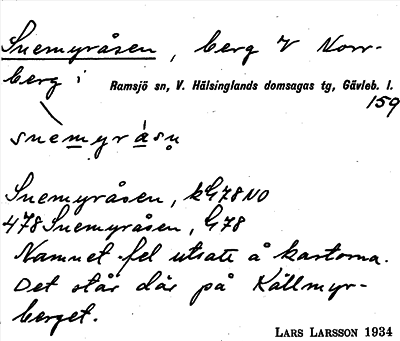 Snemyråsen, berg V Norr-
berg i Ramsjö sn, V. Hälsinglands domsagas tg, Gävleb. l.
159
snemyråsn̥
Snemyråsen, kG78NO
478 Snemyråsen, G78
Namnet fel utsatt å kartorna.
Det står där på Källmyr-
berget.
LARS LARSSON 1934